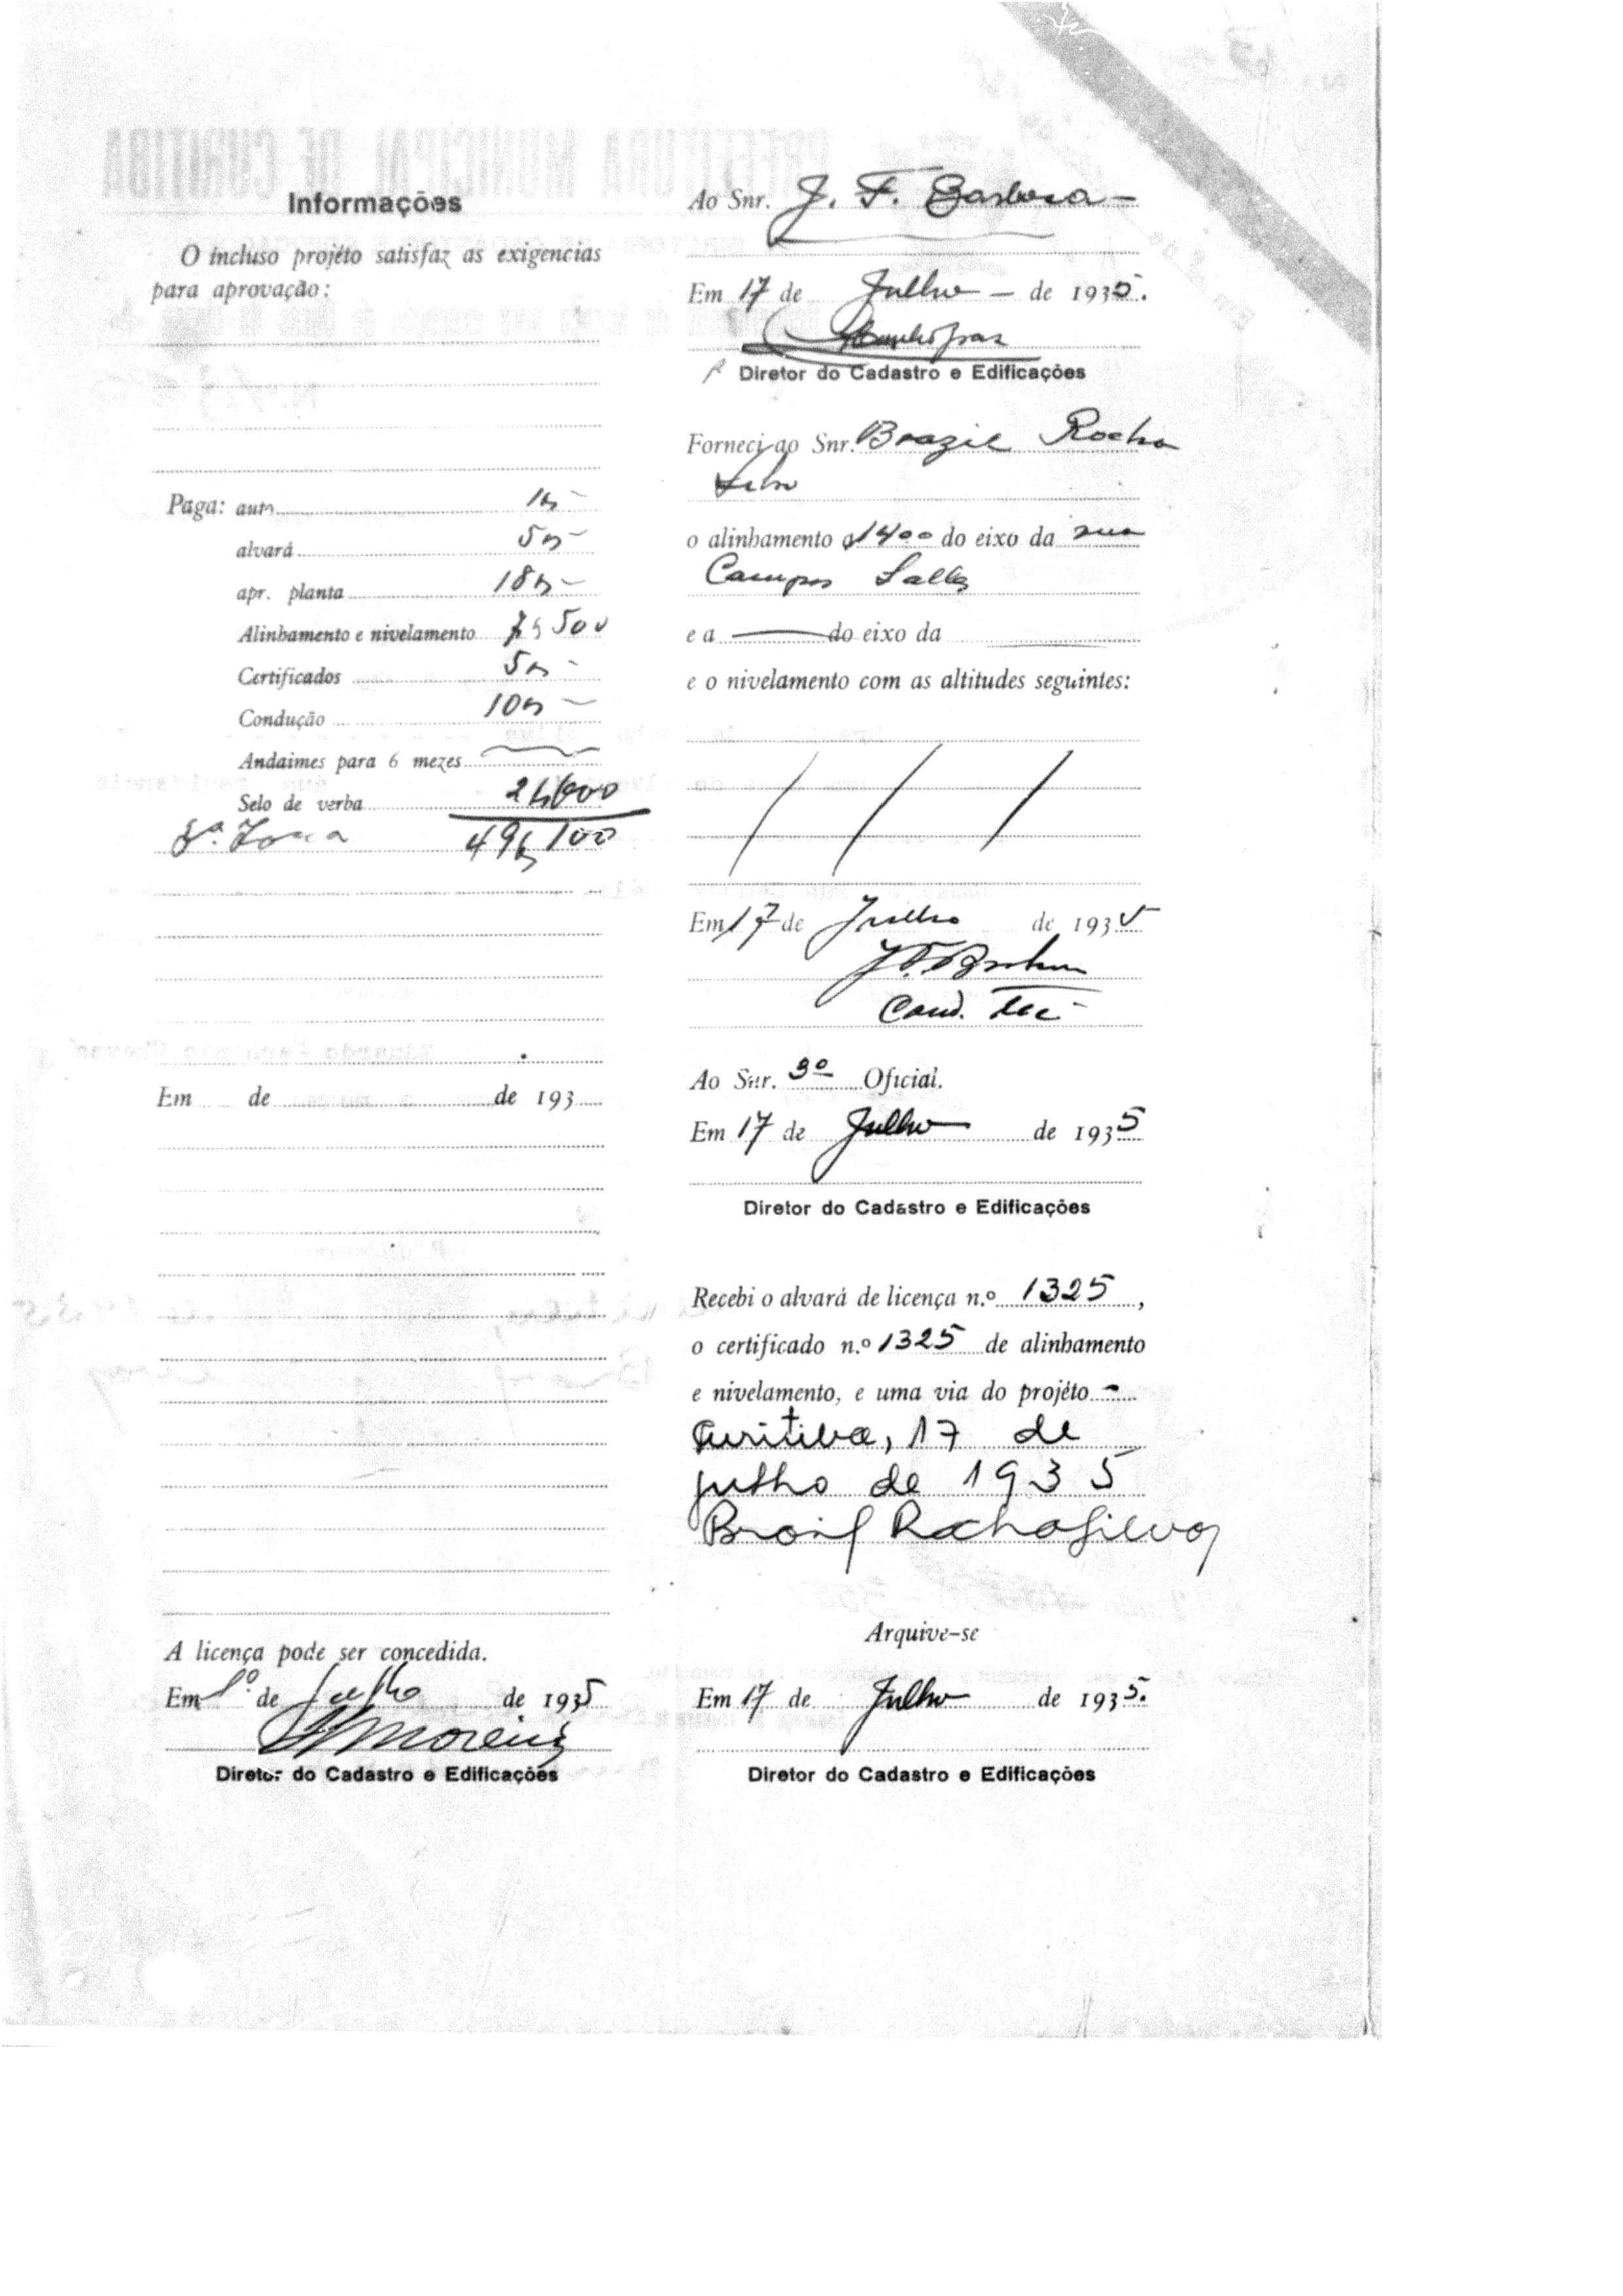 Informações
O incluso projéto satisfaz as exigencias
para aprovação:
Paga: auto 1$ -
alvará 5$ -
apr. planta 18$ -
Alinhamento e nivelamento 7$500
Certificados 5$ -
Condução 10$ -
Andaimes para 6 mezes
Selo de verba
49$100
Em de de 193
A licença pode ser concedida.
Em 1º de Julho de 1935
Moreira
Diretor do Cadastro e Edificações
Ao Snr. J. F. Barbosa -
Em 17 de Julho - de 1935.
Diretor do Cadastro e Edificações
Forneci ao Snr. Brazil Rocha
o alinhamento a 1400 do eixo da rua
Campos Salles
e a do eixo da
e o nivelamento com as altitudes seguintes:
/ / /
Em 17 de Julho de 1935
J. F. Barbosa
Cond. Tec
Ao Snr. 3º Oficial.
Em 17 de Julho de 1935
Diretor do Cadastro e Edificações
Recebi o alvará de licença n.º 1325,
o certificado n.º 1325 de alinhamento
e nivelamento, e uma via do projéto -
Curitiba, 17 de
julho de 1935
Brasil Rocha Silva
Arquive-se
Em 17 de Julho de 1935.
Diretor do Cadastro e Edificações